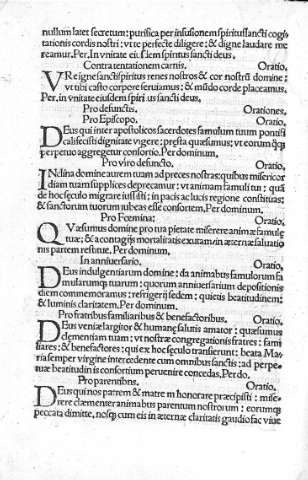 nullum latet secretum: purifica per infusionem spirituſſancti cogi-
tationis cordis noſtri: vt te perfecte diligere: & digne laudare me
reamur. Per. In vnitate eiuſdem ſpiritus ſancti deus.
Contra tentationem carnis. Oratio.
VRe igne ſancti ſpiritus renes noſtros & cor noſtrũ domine:
vt tibi caſto corpore ſeruiamus: & mũdo corde placeamus.
Per. in vnitate eiuſdem ſpiritus ſancti deus.
Pro defunctis. Orationes.
Pro Epiſcopo. Oratio.
DEus qui inter apoſtolicos ſacerdotes famulum tuum pontifi
cali feciſti dignitate vigere: preſta quæſumus: vt eorum quoq̃
perpetuo aggregetur conſortio. Per dominum.
Pro viro defuncto. Oratio.
INclina domine aurem tuam ad preces noſtras: quibus miſericor
diam tuam ſupplices deprecamur: vt animam famuli tui: quã
de hoc ſeculo migrare iuſſiſti: in pacis ac lucis regione conſtituas:
& ſanctorum tuorum iubeas eſſe conſortem. Per dominum.
Pro Fœmina. Oratio.
QVæſumus domine pro tua pietate miſerere animæ famulę
tuæ: & a contagijs mortalitatis exutam in æternæ ſaluatio
nis partem reſtitue. Per dominum.
In anniuerſario. Oratio.
DEus indulgentiarum domine: da animabus famulorum fa
mularumq̃ tuarum: quorum anniuerſarium depoſitionis
diem commemoramus: refrigerij ſedem: quietis beatitudinem:
& luminis claritatem. Per dominum.
Pro fratribus familiaribus & benefactoribus. Oratio.
DEus veniæ largitor & humanę ſalutis amator: quæſumus
clementiam tuam: vt noſtræ congregationis fratres: fami
liares: & benefactores: qui ex hoc ſęculo tranſierunt: beata Ma-
ria ſemper virgine intercedente cum omnibus ſanctis: ad perpe-
tuæ beatitudinis conſortium peruenire concedas. Per do.
Pro parentibus. Oratio.
DEus qui nos patrem & matrem honorare præcipiſti: miſe-
rere clæmenter animabus parentum noſtrorum: eorumq̃
peccata dimitte, noſq̃ cum eis in æternæ claritatis gaudio fac viue